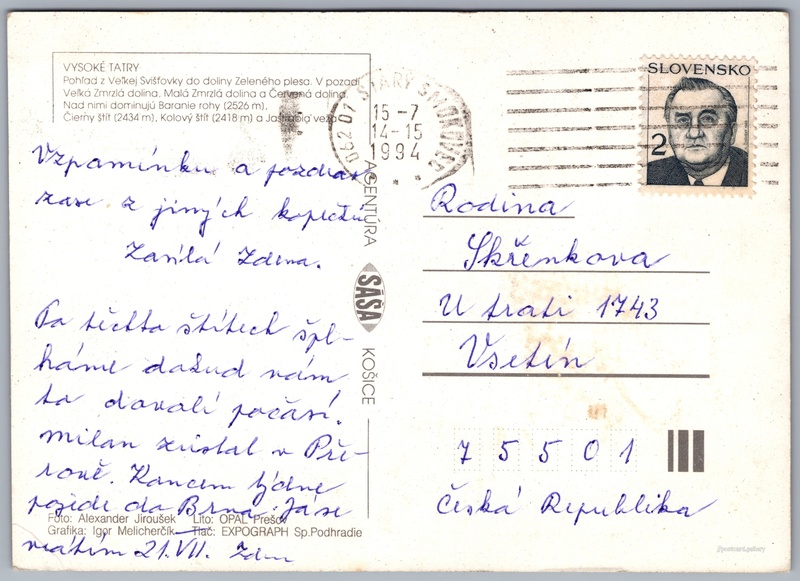 VYSOKÉ TATRY
Pohľad z Veľkej Svišťovky do doliny Zeleného plesa. V pozadí
Veľká Zmrzlá dolina, Malá Zmrzlá dolina a Červená dolina.
Nad nimi dominujú Baranie rohy (2526 m),
Čierny štít (2434 m), Kolový štít (2418 m) a Jastrabia veža
062 01 STARÝ SMOKOVEC
15 -7
14-15
1994
SLOVENSKO
2
Vzpomínku a pozdrav
zase z jiných kopečků
Zasílá Zdena.
Po těchto štítech špl-
háme dokud nám
to dovolí počasí.
Milan zůstal v Pře-
rově. Koncem týdne
pojede do Brna. Já se
vrátím 21.VII. Zden
AGENTÚRA
SAŠA
KOŠICE
Rodina
Skřenkova
U trati 1743
Vsetín
7 5 5 0 1
Česká Republika
Foto: Alexander Jiroušek Lito: OPAL Prešov
Grafika: Igor Melicherčík Tlač: EXPOGRAPH Sp.Podhradie
@postcard.gallery